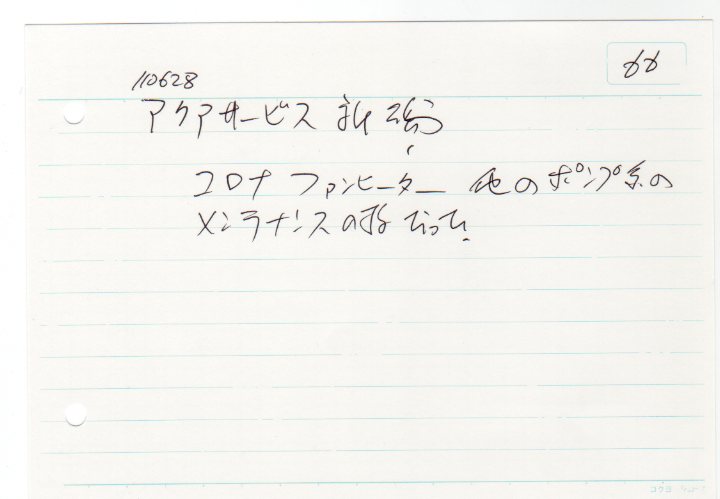 66
110628
アクアサービス 新潟
コロナ ファンヒーター 他のポンプ系の
メンテナンスの
コクヨ